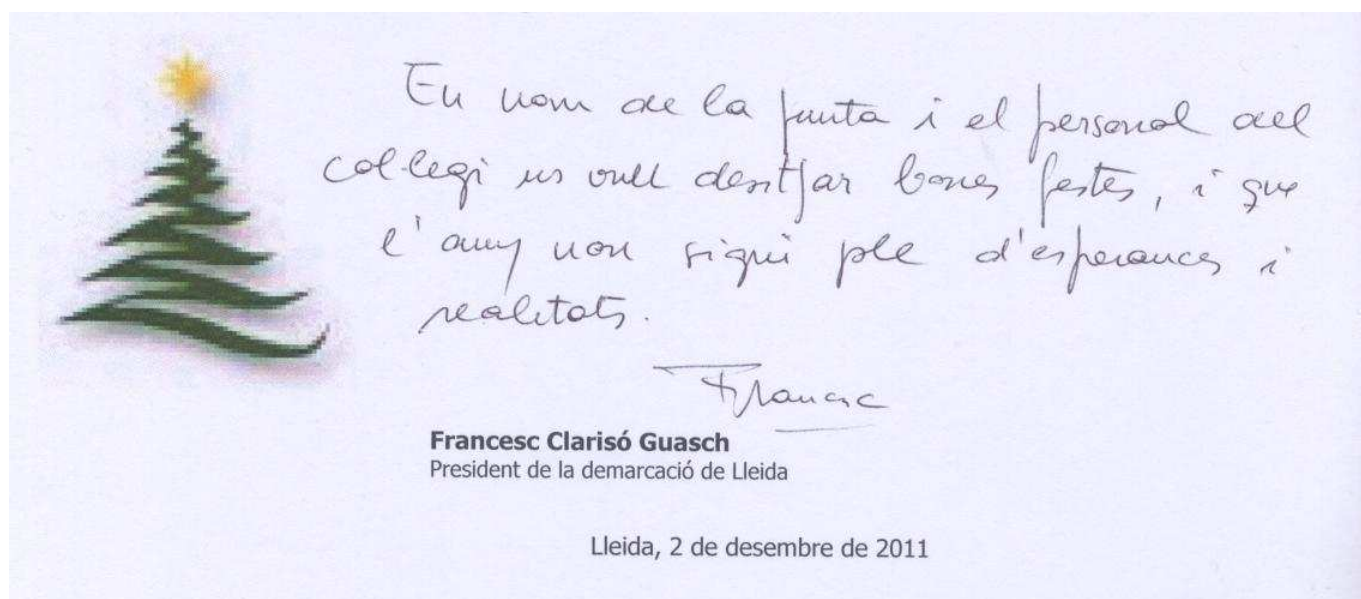 En nom de la junta i el personal del
col·legi us vull desitjar bones festes, i que
l'any nou sigui ple d'esperances i
realitats.
Francesc
Francesc Clarisó Guasch
President de la demarcació de Lleida
Lleida, 2 de desembre de 2011